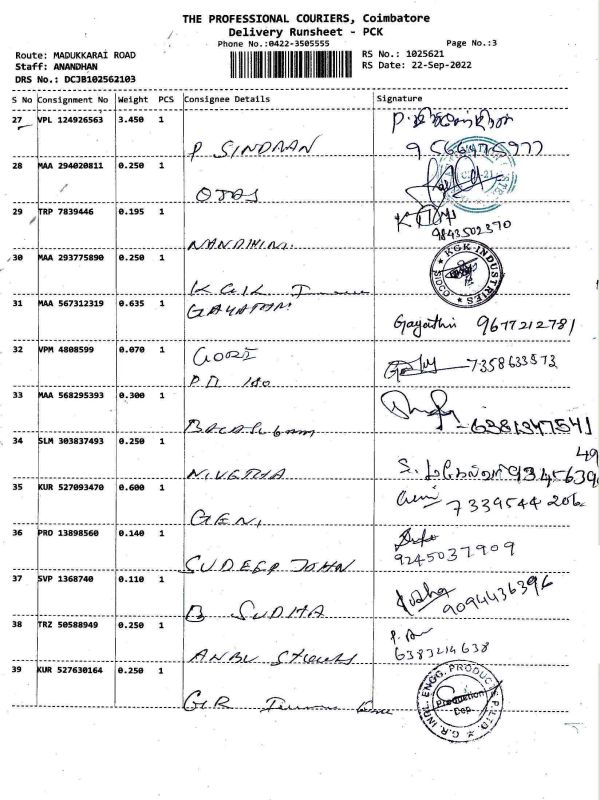 THE PROFESSIONAL COURIERS, Coimbatore
Delivery Runsheet - PCK
Phone No.:0422-3505555 Page No.:3
Route: MADUKKARAI ROAD RS No.: 1025621
Staff: ANANDHAN RS Date: 22-Sep-2022
DRS No.: DCJB102562103
S No Consignment No Weight PCS Consignee Details Signature
27 VPL 124926563 3.450 1
P SINDRAN
28 MAA 294020811 0.250 1
OJAS
29 TRP 7839446 0.195 1
NANDHINI 9843502370
30 MAA 293775890 0.250 1
KGK
KGK INDUSTRIES SIDCO
31 MAA 567312319 0.635 1
GAYATHRI
Gayathri 9677212781
32 VPM 4808599 0.070 1
GORI
7358633573
33 MAA 568295393 0.300 1
6381347541
34 SLM 303837493 0.250 1
NIVETHA
35 KUR 527093470 0.600 1
GENI
7339544206
36 PRO 13898560 0.140 1
SUDEEP JOHN
9245037909
37 SVP 1368740 0.110 1
B SUDHA
9094436396
38 TRZ 50588949 0.250 1
ANBU
6383214638
39 KUR 527630164 0.250 1
G.R
G.R. INDL. ENGG. PRODUCTS P. LTD.
Production
Dep.